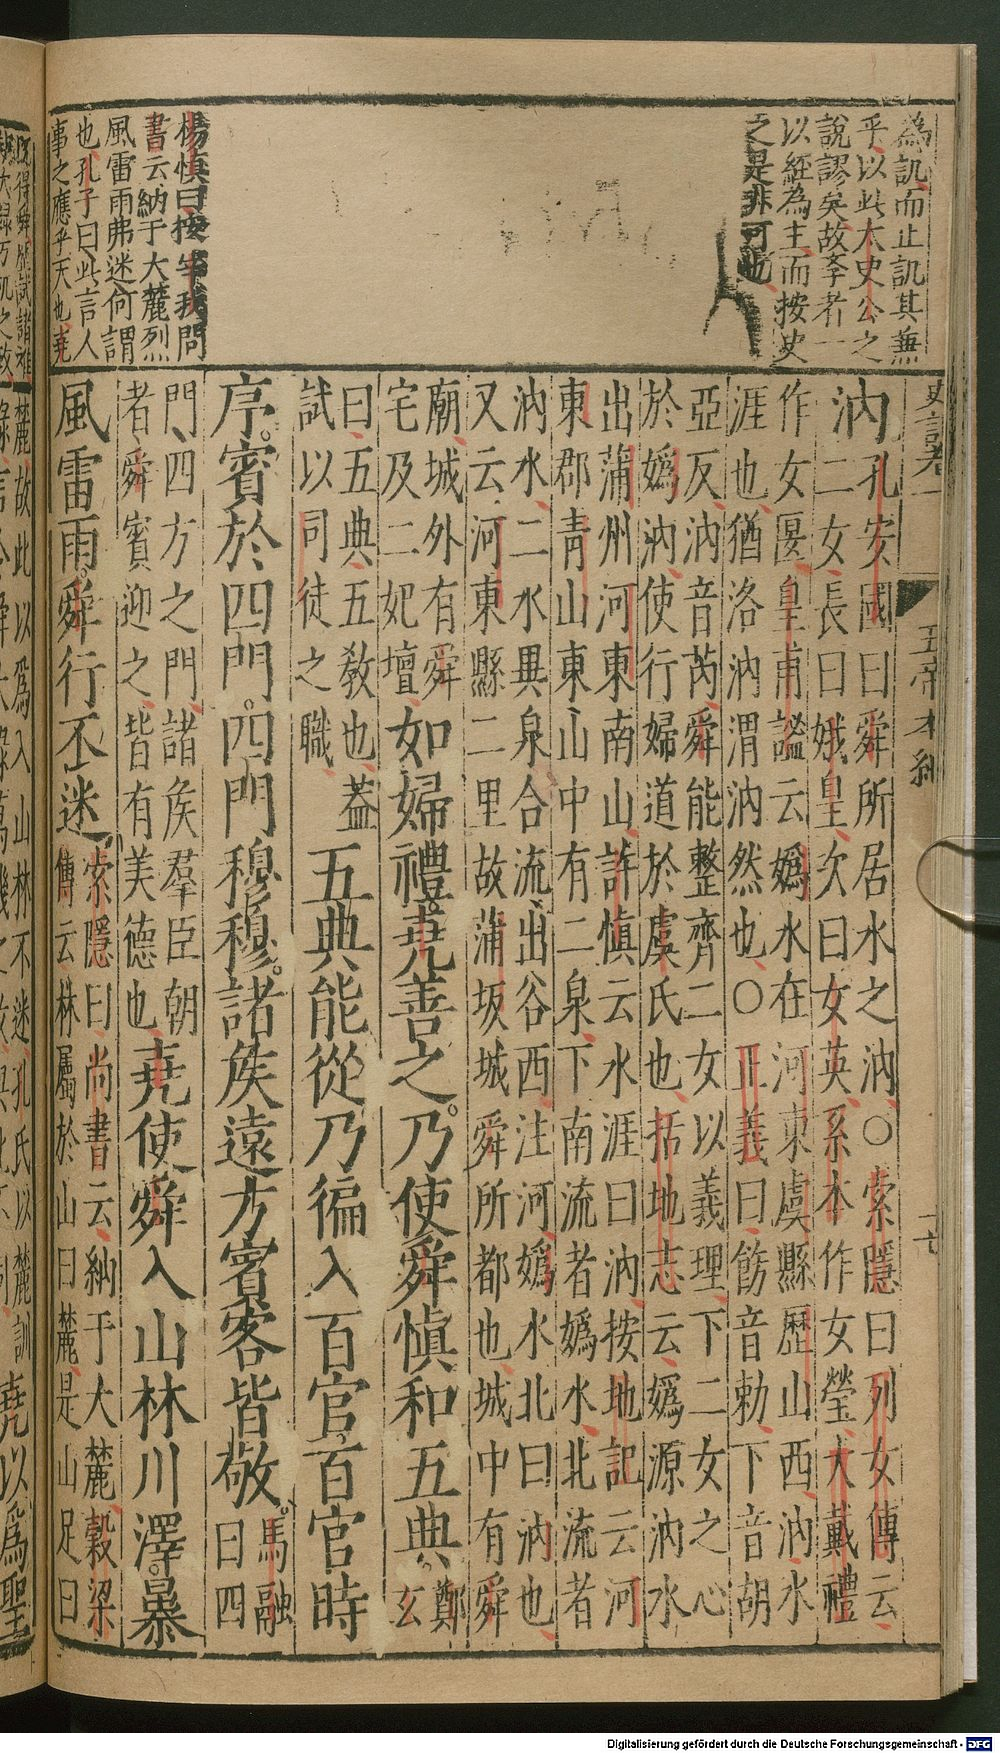 為訊而止訊其無
乎以此太史公之
說謬矣故孝者一
以經為主而按史
之是非可也
楊慎曰按宰我問
書云納于大麓烈
風雷雨弗迷何謂
也孔子曰此言人
事之應乎天也堯
史記卷一
五帝本紀
汭孔安國曰舜所居水之汭〇索隱曰列女傳云
二女長曰娥皇次曰女英系本作女瑩大戴禮
作女匽皇甫謐云嬀水在河東虞縣歷山西汭水
涯也猶洛汭渭汭然也〇正義曰飭音勅下音胡
亞反汭音芮舜能整齊二女以義理下二女之心
於嬀汭使行婦道於虞氏也括地志云嬀源汭水
出蒲州河東南山許慎云水涯曰汭按地記云河
東郡青山東山中有二泉下南流者嬀水北流者
汭水二水異泉合流出谷西注河嬀水北曰汭也
又云河東縣二里故蒲坂城舜所都也城中有舜
廟城外有舜
宅及二妃壇如婦禮堯善之乃使舜慎和五典鄭玄
曰五典五教也蓋
試以司徒之職五典能從乃徧入百官百官時
序賓於四門四門穆穆諸矦遠方賓客皆敬馬融曰四
門四方之門諸矦羣臣朝
者舜賓迎之皆有美德也堯使舜入山林川澤暴
風雷雨舜行不迷索隱曰尚書云納于大麓穀梁
傳云林屬於山曰麓是山足曰
麓故此以為入山林不迷孔氏以麓訓
堯以爲聖
Digitalisierung gefördert durch die Deutsche Forschungsgemeinschaft - DFG